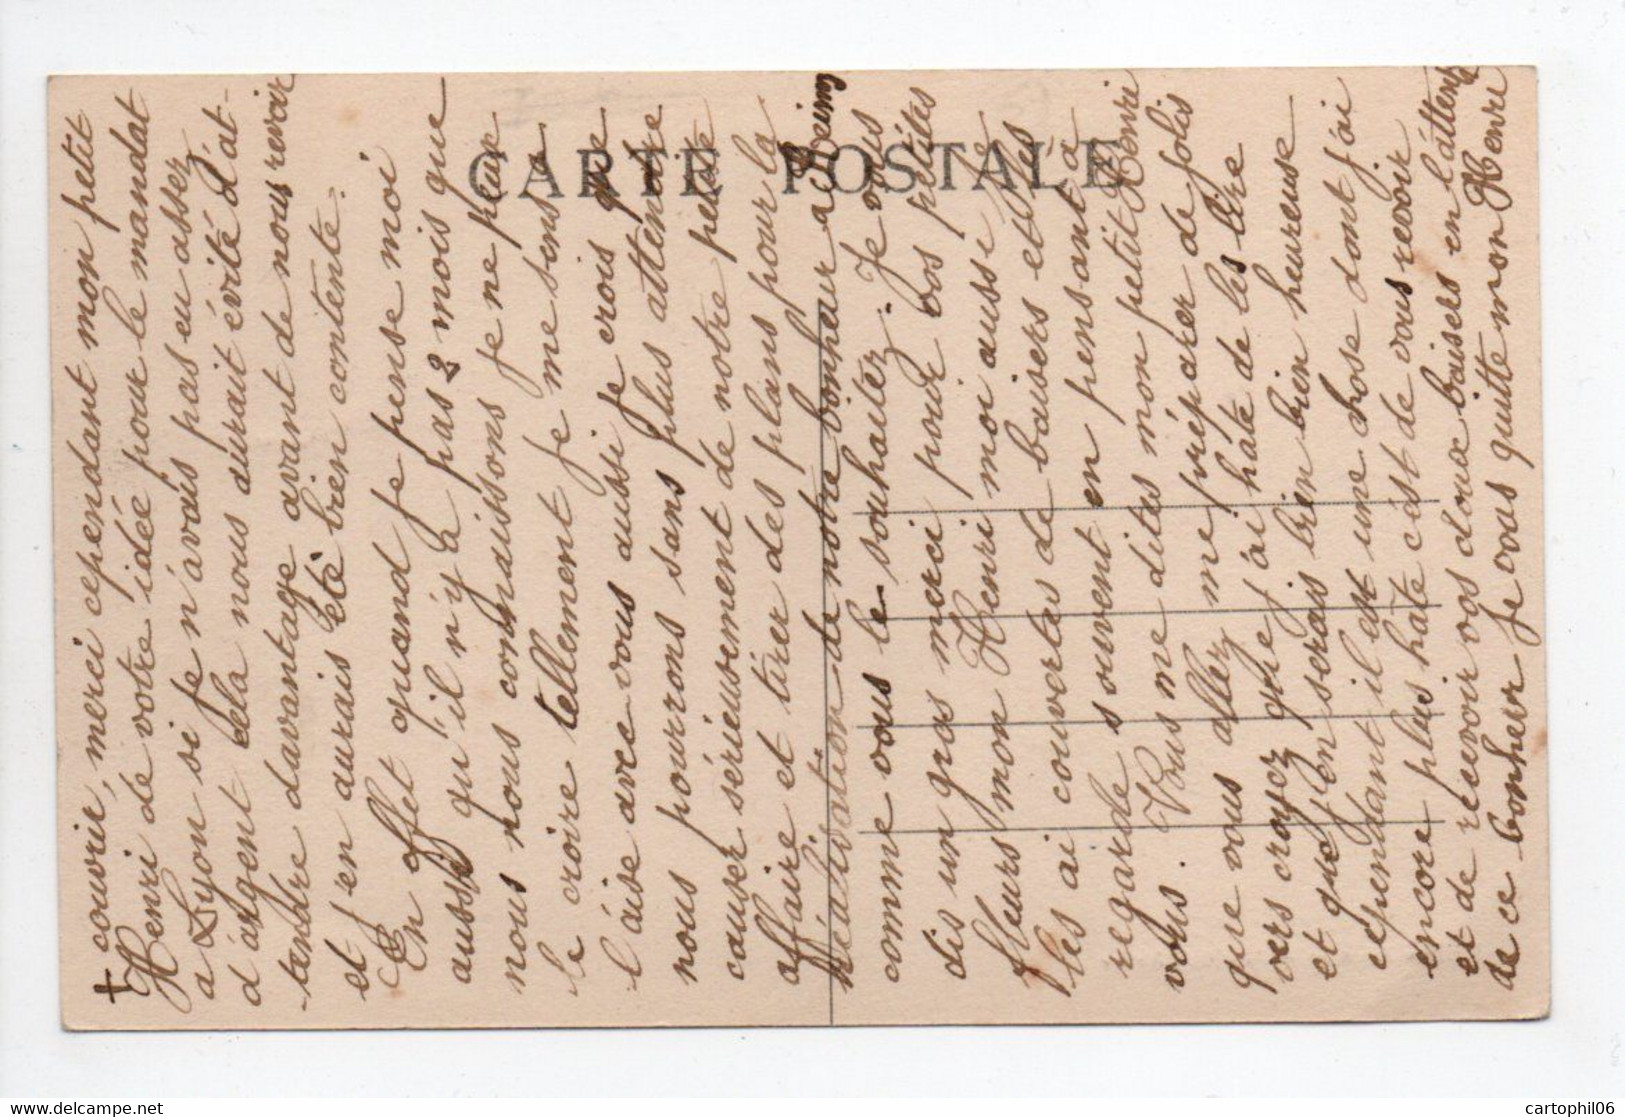 CARTE POSTALE
+ couvrir, merci cependant mon petit
Henri de votre idée pour le mandat
a Lyon si je n'avais pas eu assez
d'argent cela nous aurait évité d'at-
-tendre davantage avant de nous revoir
et j'en aurais été bien contente.
En effet quand je pense moi
aussi qu'il n'y a pas 2 mois que
nous nous connaissons je ne puis
le croire tellement je me sens a
l'aise avec vous aussi je crois que
nous pourrons sans plus attendre
causer sérieusement de notre petite
affaire et tirer des plans pour la
réalisation de notre bonheur a Reims
comme vous le souhaitez. Je vous
dis un gros merci pour vos petites
fleurs mon Henri moi aussi je
les ai couvertes de baisers et les
regarde souvent en pensant a
vous. Vous me dites mon petit Henri
que vous allez me préparer de jolis
vers croyez que j'ai hate de les lire
et que j'en serais bien bien heureuse
cependant il est une chose dont j'ai
encore plus hate c'est de vous revoir
et de recevoir vos doux baisers en l'attente
de ce bonheur je vous quitte mon Henri
cartophil06